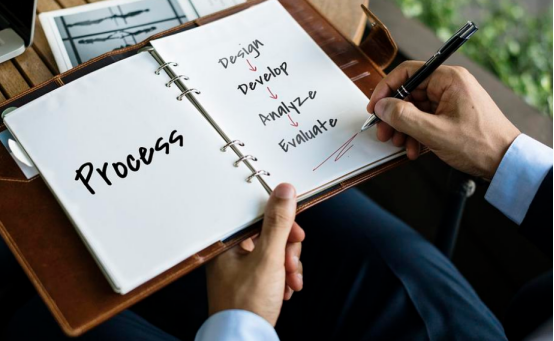 Process
Design
Develop
Analyze
Evaluate